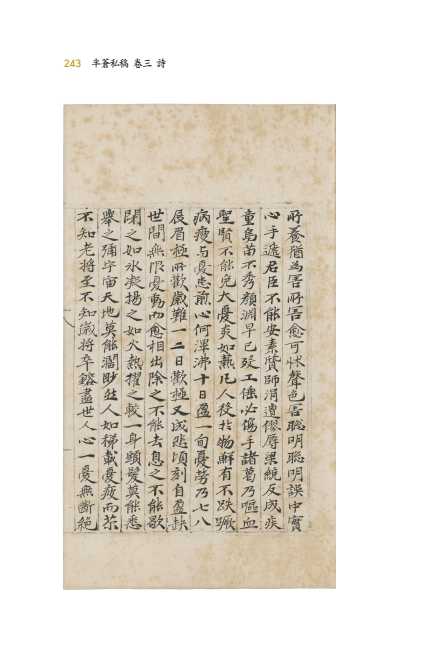 243 半蒼私稿 卷三 詩
所養猶爲害所害愈可怵聲色害聰明聰明誤中實
心手遞君臣不能安素質師涓遭僇辱梁統反成疾
童烏苗不秀顏淵早已歿工倕必傷手諸葛乃嘔血
聖賢不能免大憂炎如爇凡人役於物鮮有不跌蹶
病瘦与憂患煎心何渾沸十日盈一旬憂勞乃七八
展眉極所歡歲難一二日歡極又成悲頃刻自盈缺
世間無限憂動而愈相出除之不能去息之不能歇
閉之如氷凝揚之如火熱擢之較一身頭髮莫能悉
舉之彌宇宙天地莫能濶眇然人如梯載憂疲而苶
不知老將至不知歲將卒鎔盡世人心一憂無斷絕